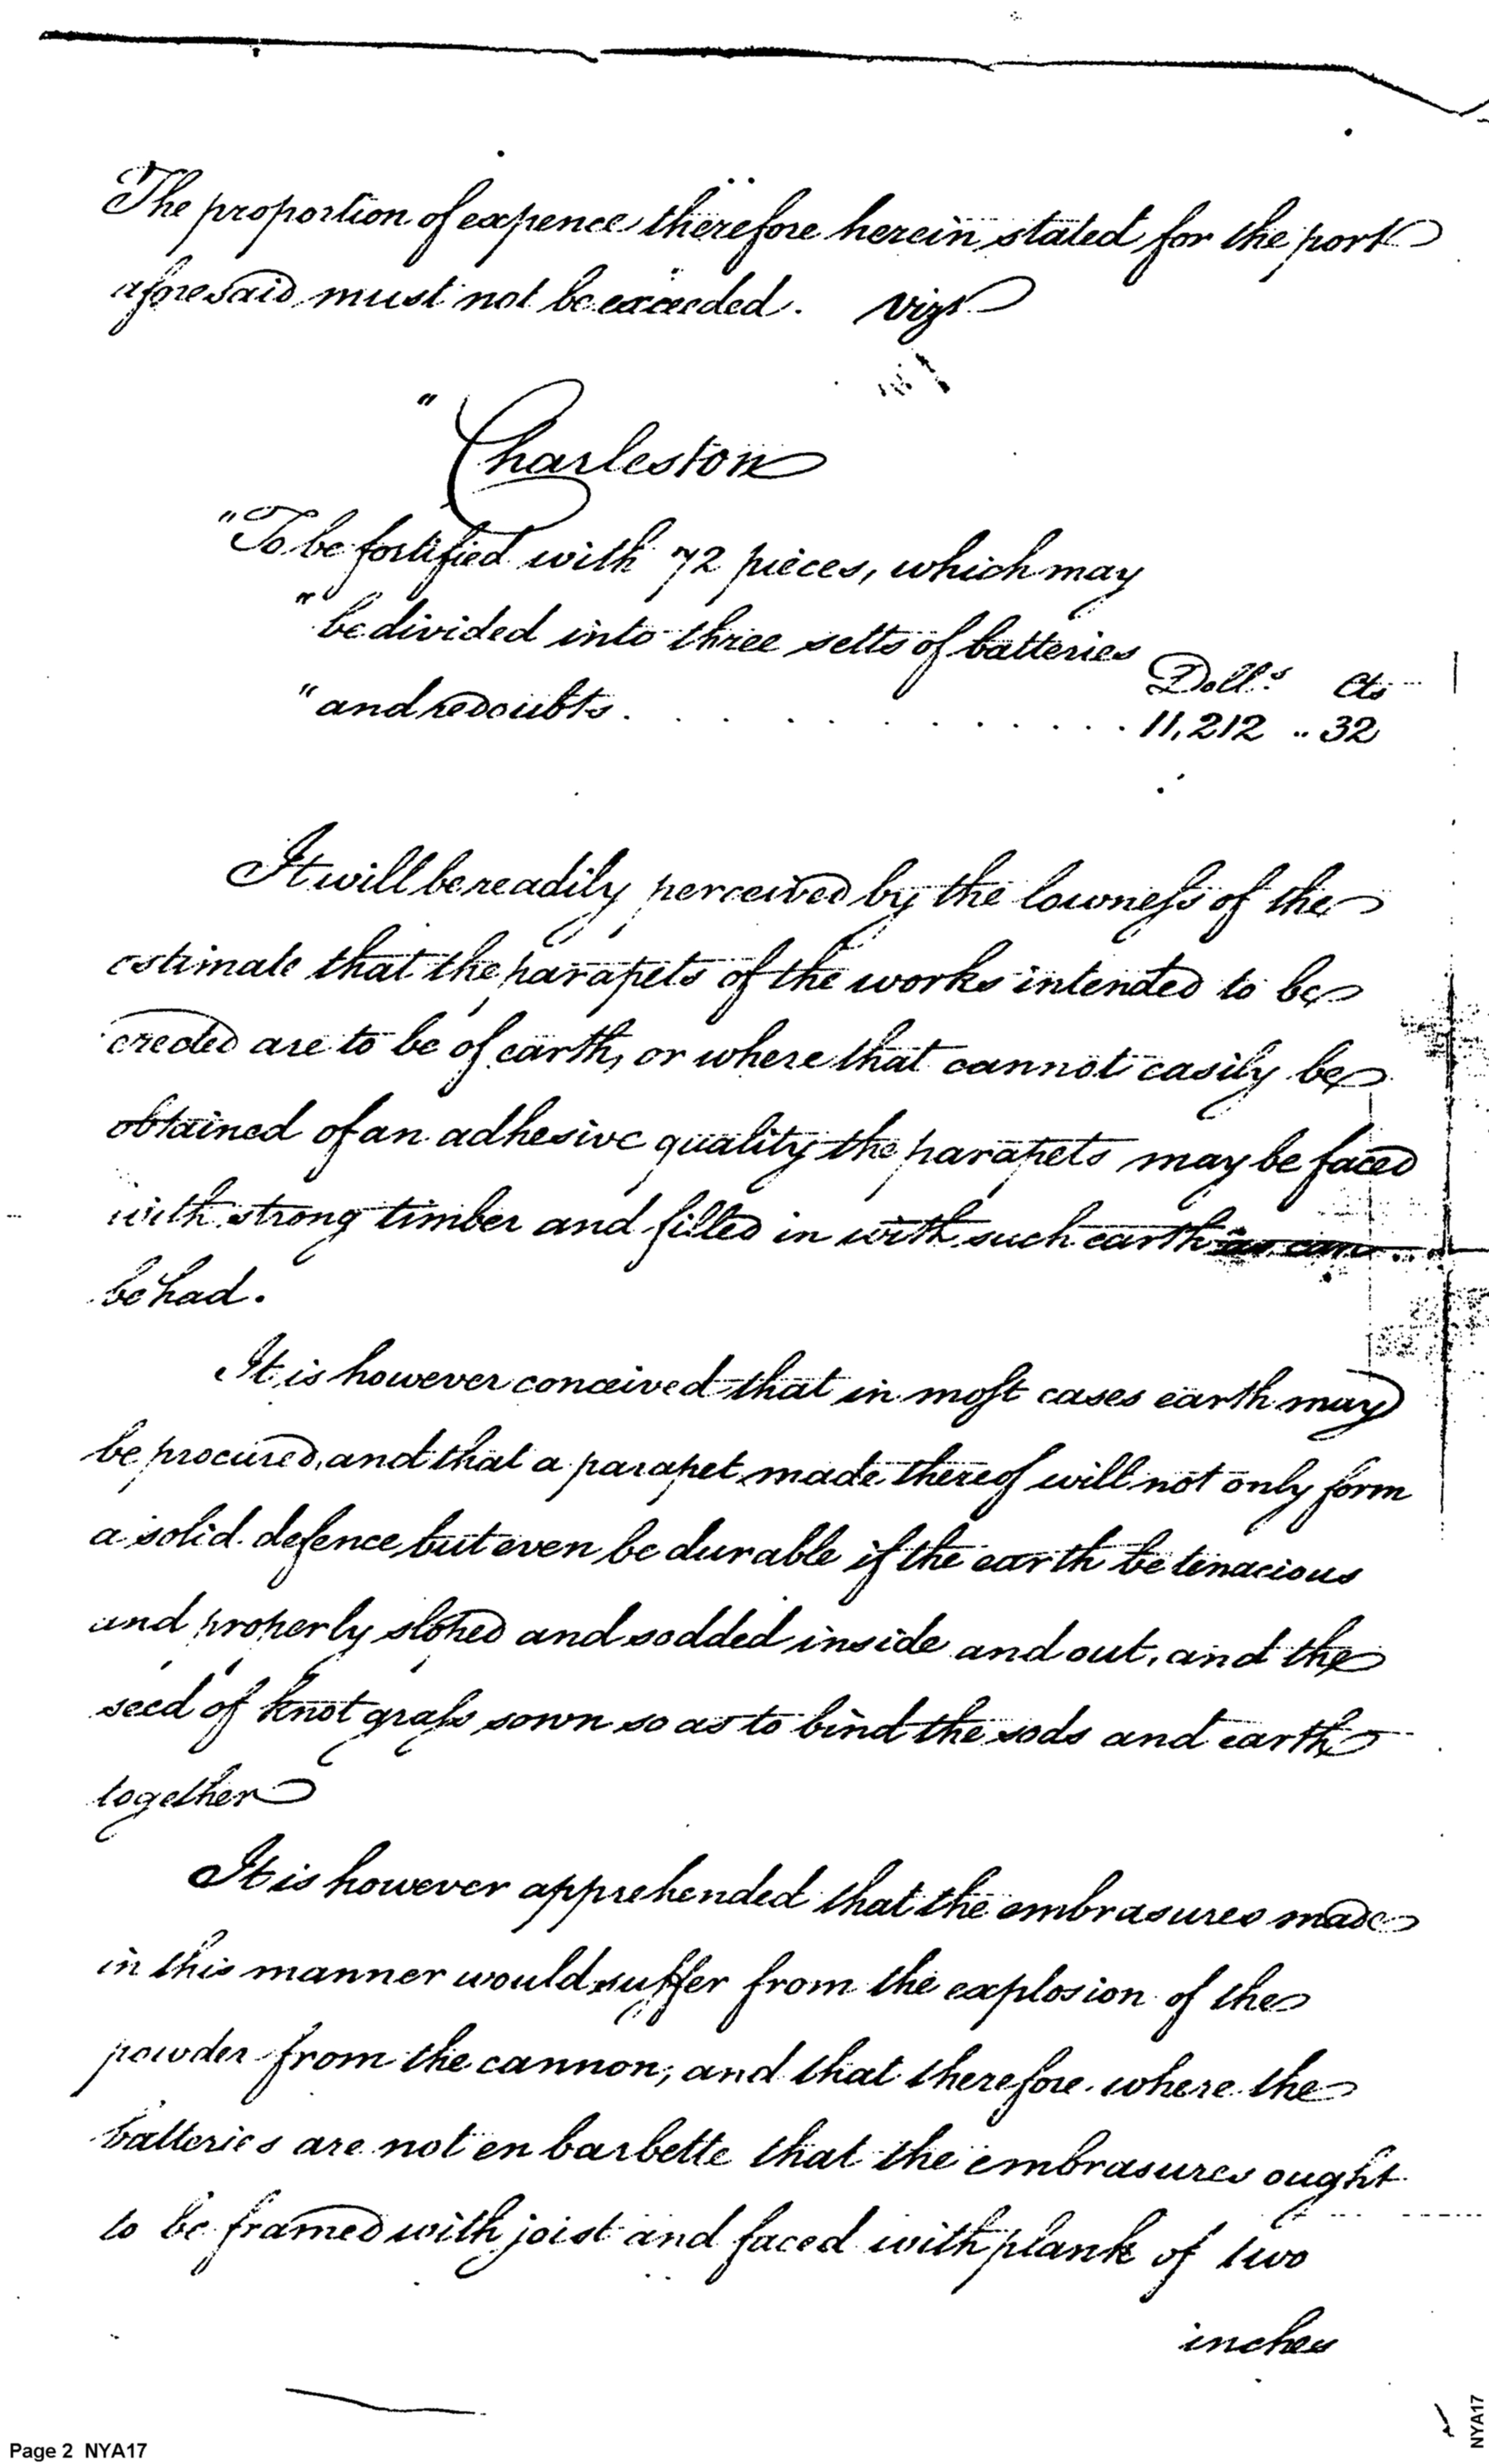 The proportion of expence therefore herein stated for the port
aforesaid must not be exceeded. Vizt
" Charleston
"To be fortified with 72 pieces, which may
"be divided into three setts of batteries
Dolls. Cts
"and redoubts . . . . . . . . . . . . . 11,212 .. 32
It will be readily perceived by the lowness of the
estimate that the parapets of the works intended to be
erected are to be of earth, or where that cannot easily be
obtained of an adhesive quality the parapets may be faced
with strong timber and filled in with such earth as can
be had.
It is however conceived that in most cases earth may
be procured, and that a parapet made thereof will not only form
a solid defence but even be durable if the earth be tenacious
and properly sloped and sodded inside and out, and the
seed of knot grass sown so as to bind the sods and earth
together
It is however apprehended that the embrasures made
in this manner would suffer from the explosion of the
powder from the cannon; and that therefore where the
batteries are not en barbette that the embrasures ought
to be framed with joist and faced with plank of two
inches
Page 2 NYA17
NYA17